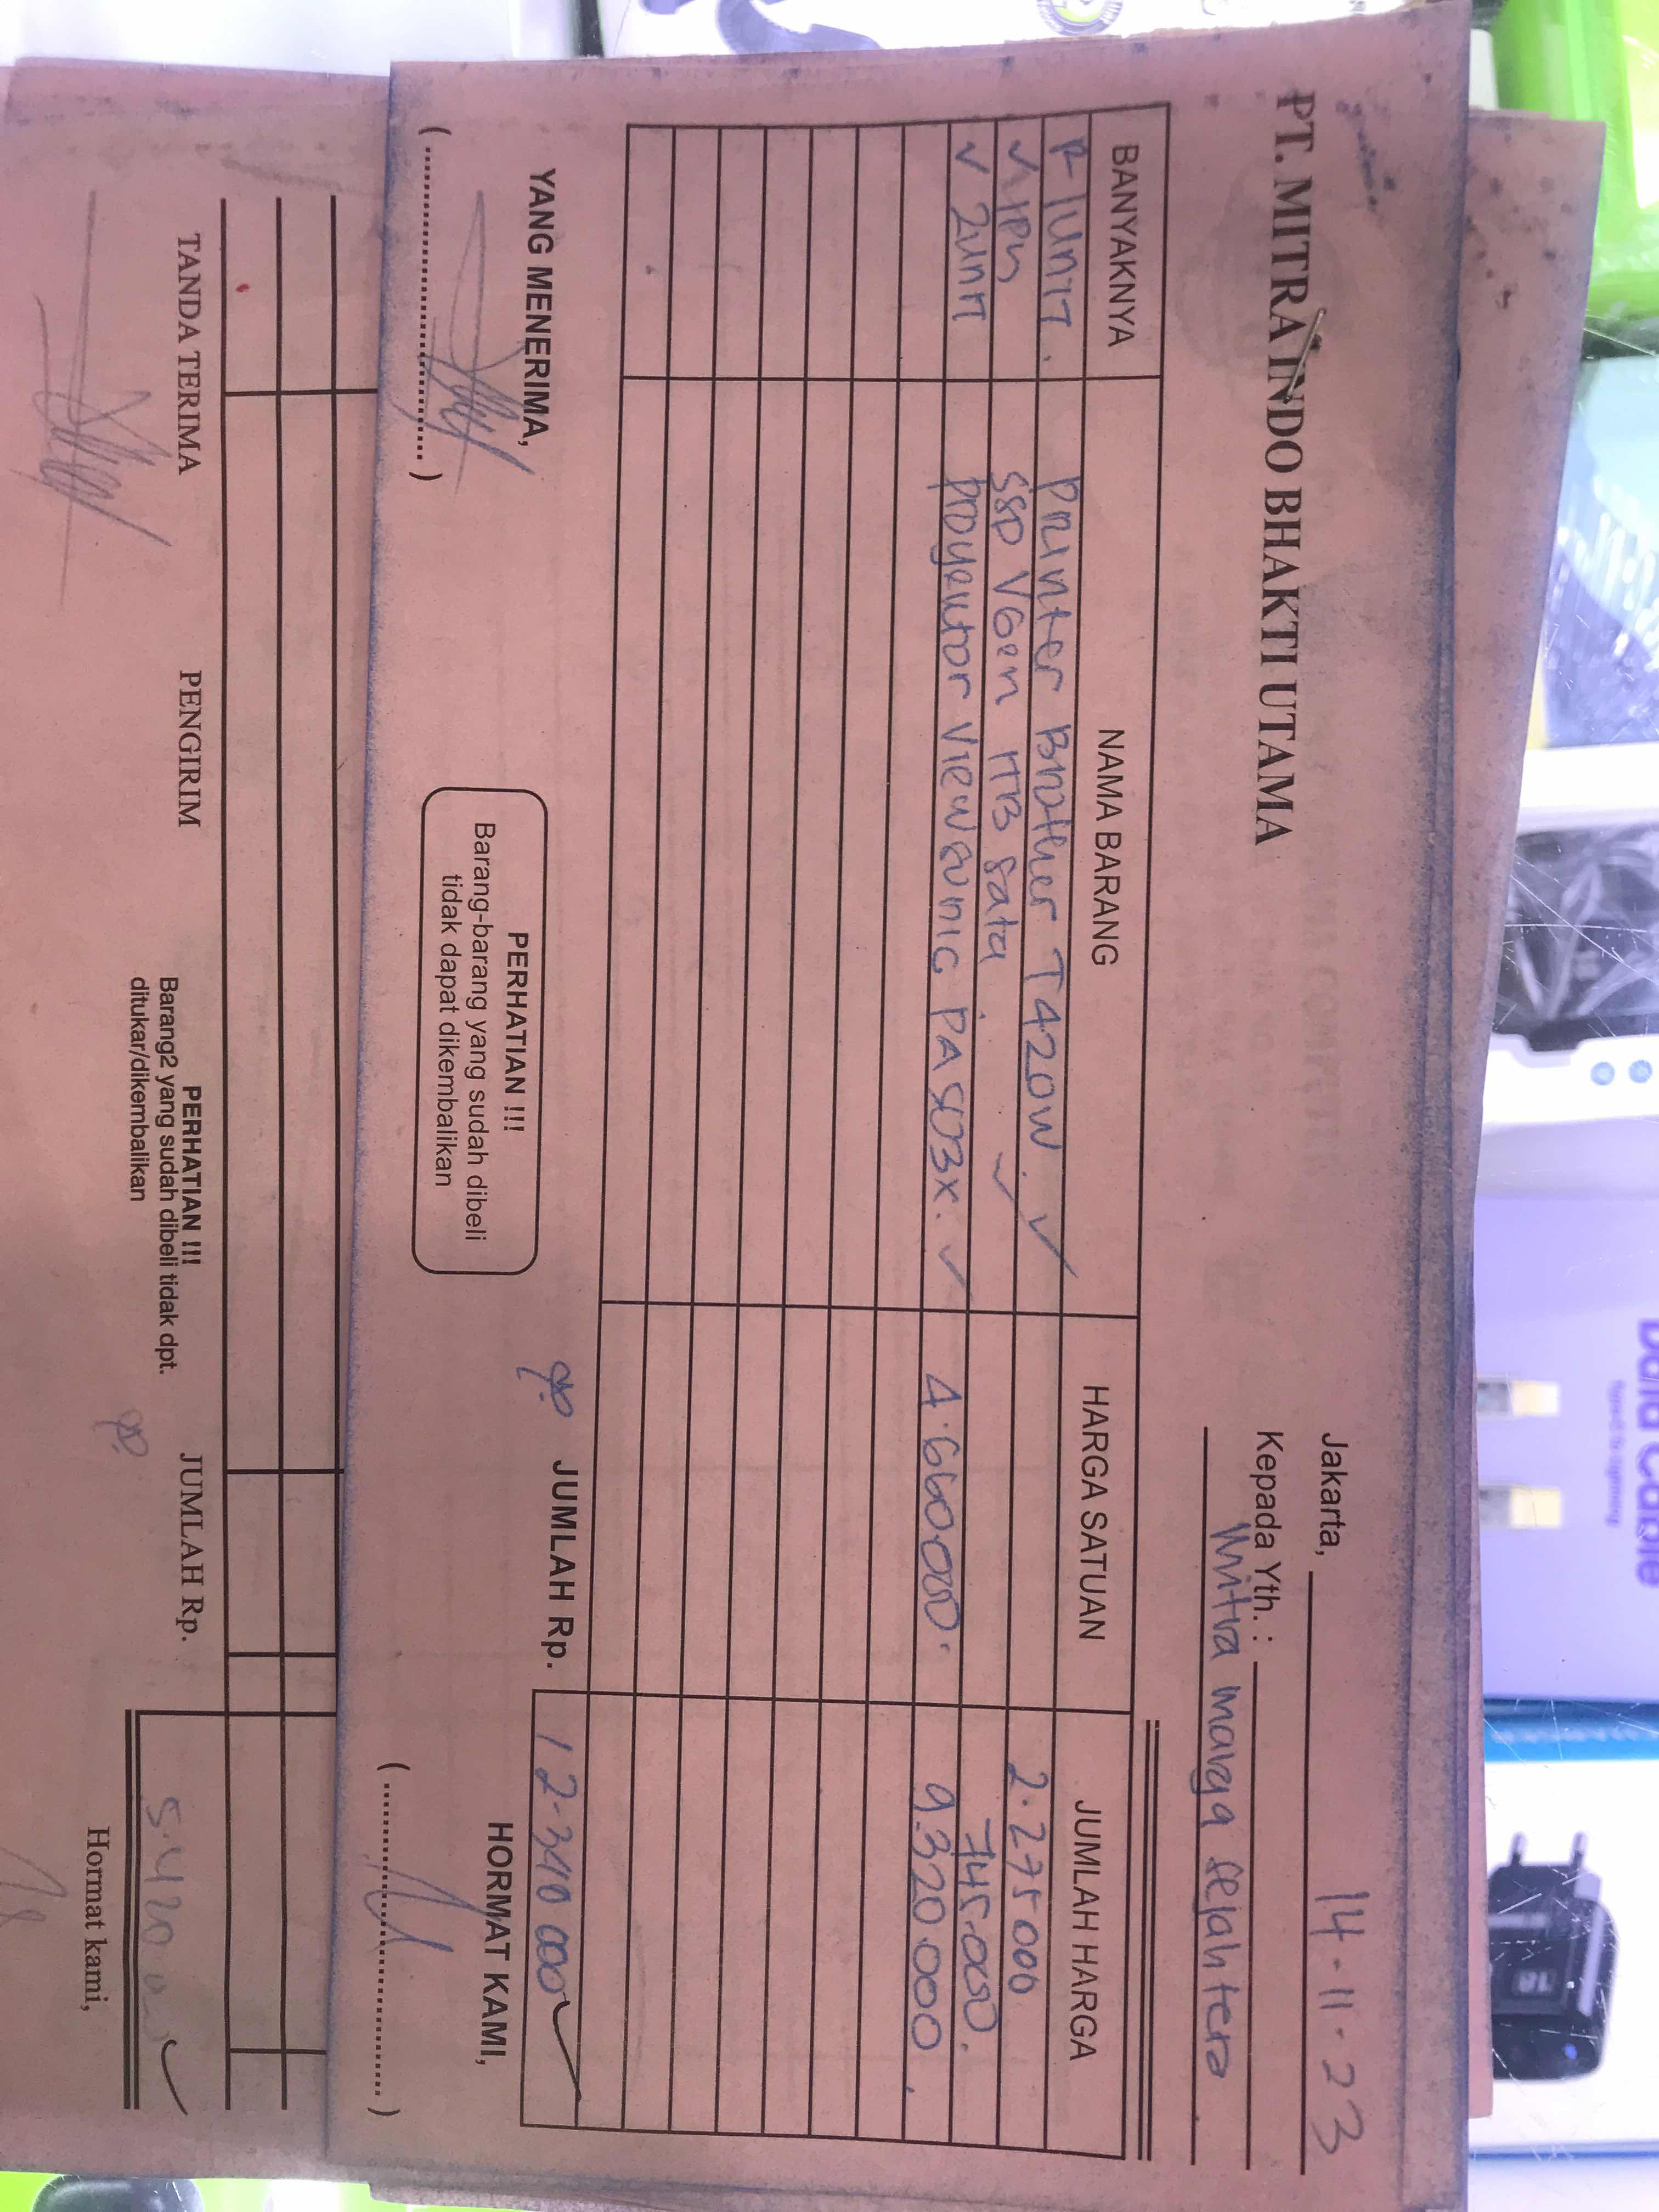 PT. MITRA INDO BHAKTI UTAMA
Jakarta, 14-11-23
Kepada Yth. :
Mitra marga Sejahtera
BANYAKNYA NAMA BARANG HARGA SATUAN JUMLAH HARGA
1 Unit. Printer Brother T420W. 2.275 000
SSD VGen 1TB Sata 745.000.
2 Unit Proyektor Viewsonic PA503X. 4.660.000. 9.320.000.
JUMLAH Rp. 12.340 000
YANG MENERIMA, HORMAT KAMI,
PERHATIAN !!!
Barang-barang yang sudah dibeli
tidak dapat dikembalikan
TANDA TERIMA PENGIRIM JUMLAH Rp.
PERHATIAN !!!
Barang2 yang sudah dibeli tidak dpt.
ditukar/dikembalikan
Hormat kami,
Data Cable